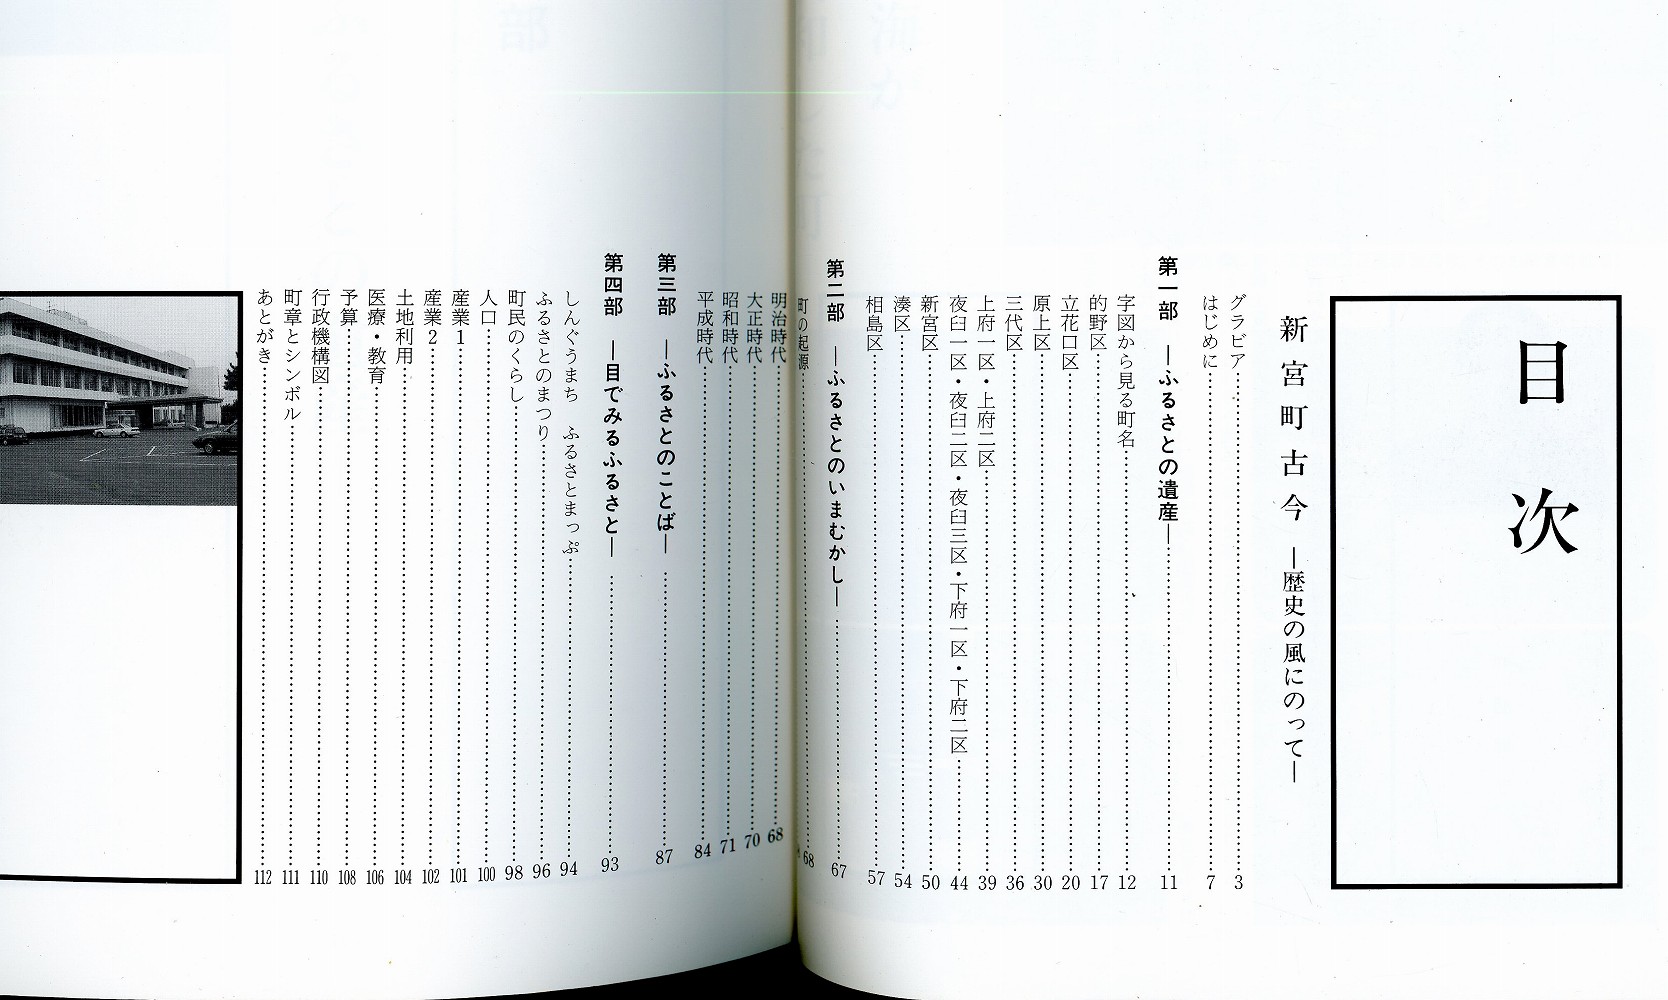 目次
新宮町古今 ―歴史の風にのって―
グラビア…………3
はじめに…………7
第一部 ―ふるさとの遺産―…………11
字図から見る町名…………12
的野区…………17
立花口区…………20
原上区…………30
三代区…………36
上府一区・上府二区…………39
夜臼一区・夜臼二区・夜臼三区・下府一区・下府二区…………44
新宮区…………50
湊区…………54
相島区…………57
第二部 ―ふるさとのいまむかし―…………67
町の起源…………68
明治時代…………68
大正時代…………70
昭和時代…………71
平成時代…………84
第三部 ―ふるさとのことば―…………87
第四部 ―目でみるふるさと―…………93
しんぐうまち ふるさとまっぷ…………94
ふるさとのまつり…………96
町民のくらし…………98
人口…………100
産業1…………101
産業2…………102
土地利用…………104
医療・教育…………106
予算…………108
行政機構図…………110
町章とシンボル…………111
あとがき…………112